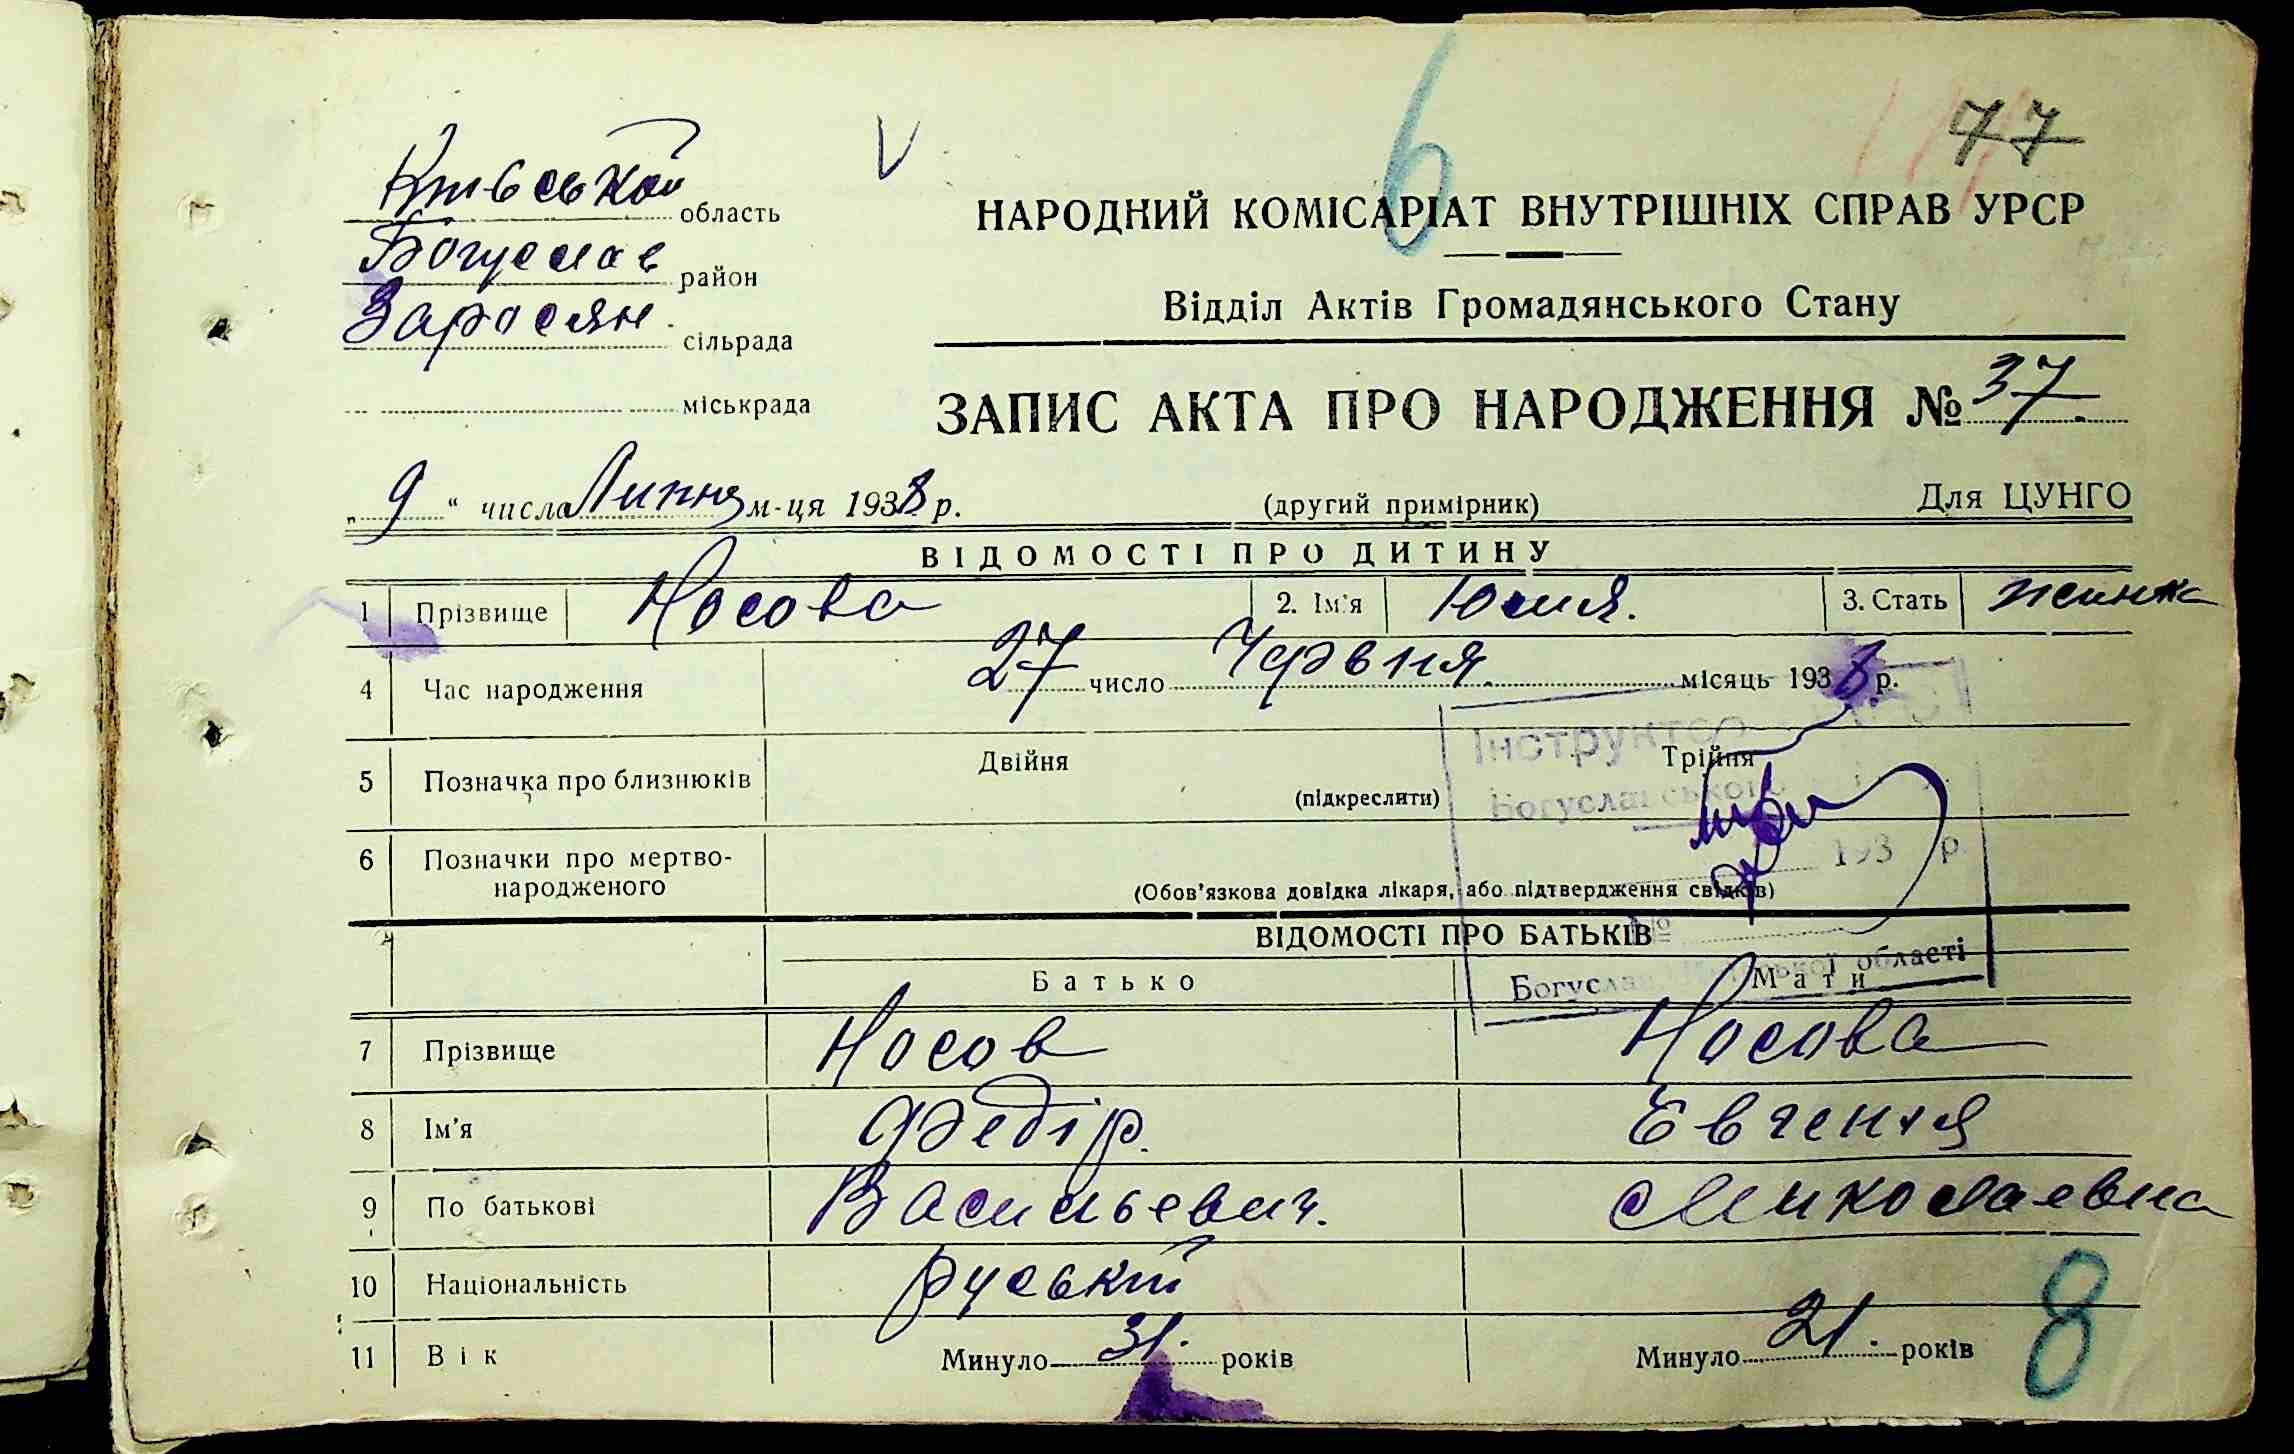 6
77
Київської область
Богуслав район
Заросян. сільрада
міськрада
НАРОДНИЙ КОМІСАРІАТ ВНУТРІШНІХ СПРАВ УРСР
Відділ Актів Громадянського Стану
ЗАПИС АКТА ПРО НАРОДЖЕННЯ № 37.
„ 9 “ числа Липня м-ця 1938 р. (другий примірник) Для ЦУНГО
ВІДОМОСТІ ПРО ДИТИНУ
1 Прізвище Носова 2. Ім'я Юлия. 3. Стать жинка
4 Час народження 27 число Червня. місяць 1938 р.
5 Позначка про близнюків Двійня (підкреслити) Трійня
Інструктор
Богуславського
193 р.
№
Богуслав Київської області
6 Позначки про мертво-
народженого (Обов'язкова довідка лікаря, або підтвердження свідків)
ВІДОМОСТІ ПРО БАТЬКІВ
Батько Мати
7 Прізвище Носов Носова
8 Ім'я Федір. Евгения
9 По батькові Васильевич. Миколаевна
10 Національність руський
11 Вік Минуло 31. років Минуло 21. років
8